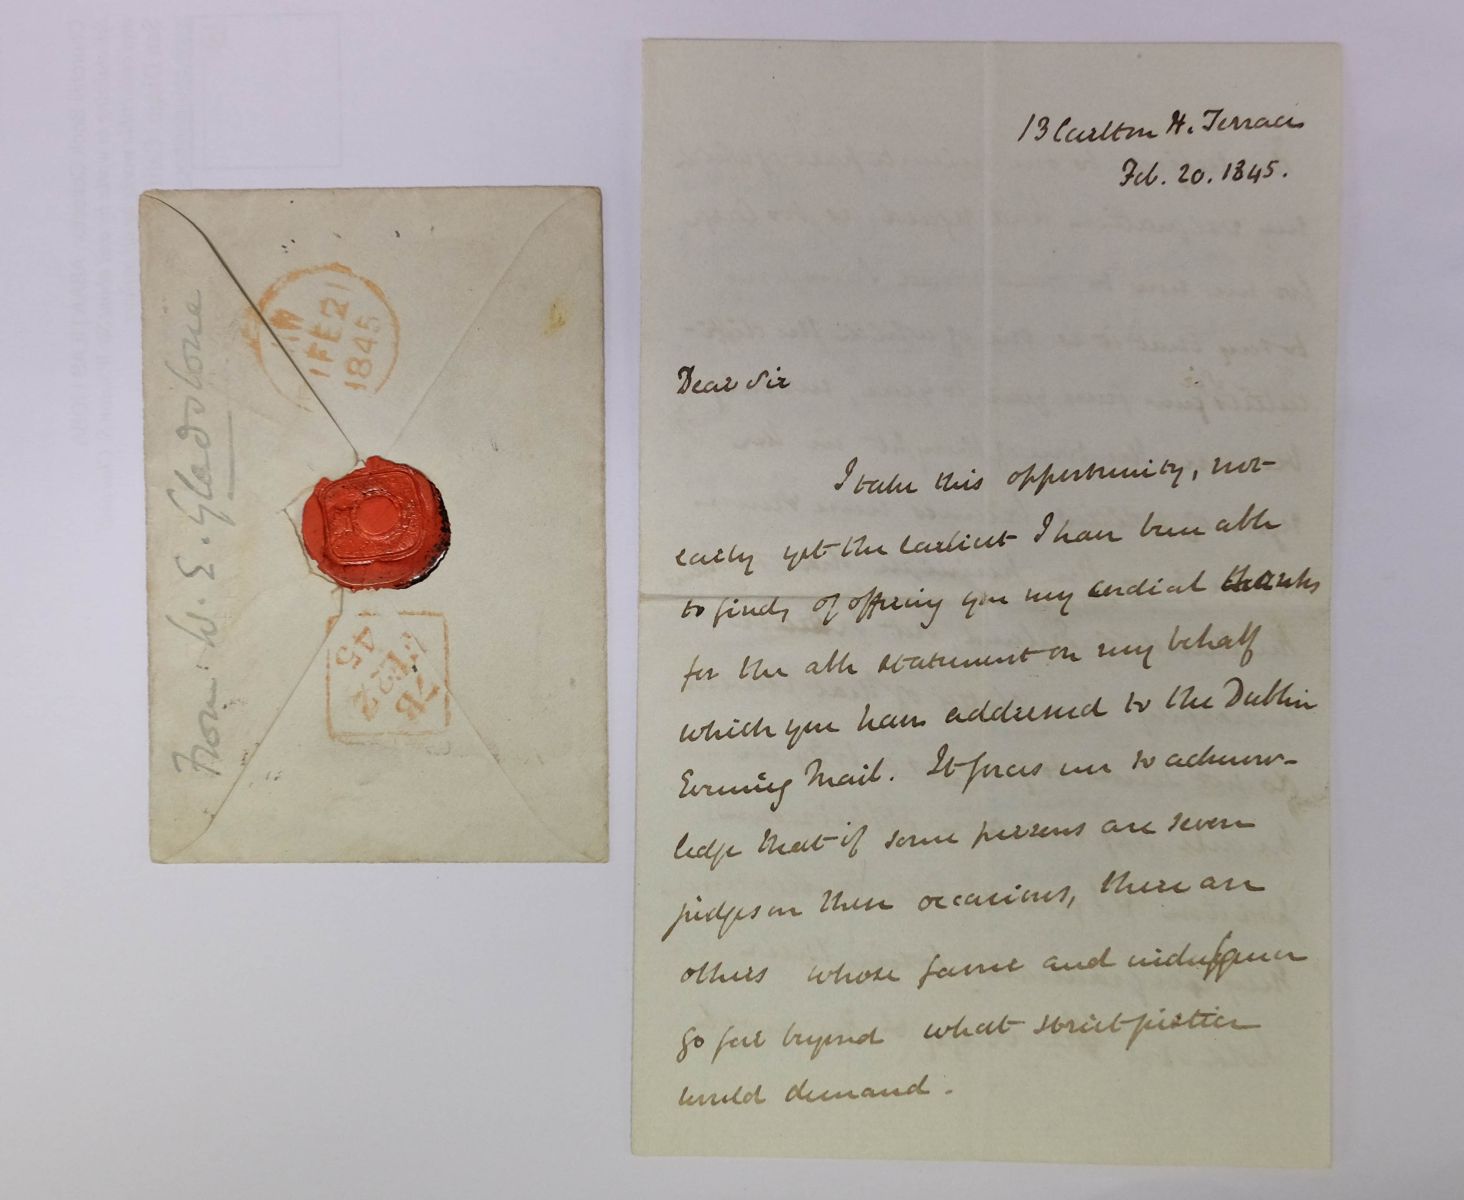 From W. E. Gladstone
1 FE 21
1845
FE 22
45
13 Carlton H. Terrace
Feb. 20. 1845.
Dear Sir
I take this opportunity, not
early yet the earliest I have been able
to find, of offering you my cordial thanks
for the able statement on my behalf
which you have addressed to the Dublin
Evening Mail. It forces me to acknow-
ledge that if some persons are severe
judges on these occasions, there are
others whose favour and indulgence
go far beyond what strict justice
would demand.